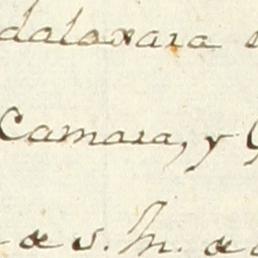 dalaxara
Camara, y
de S. M. de